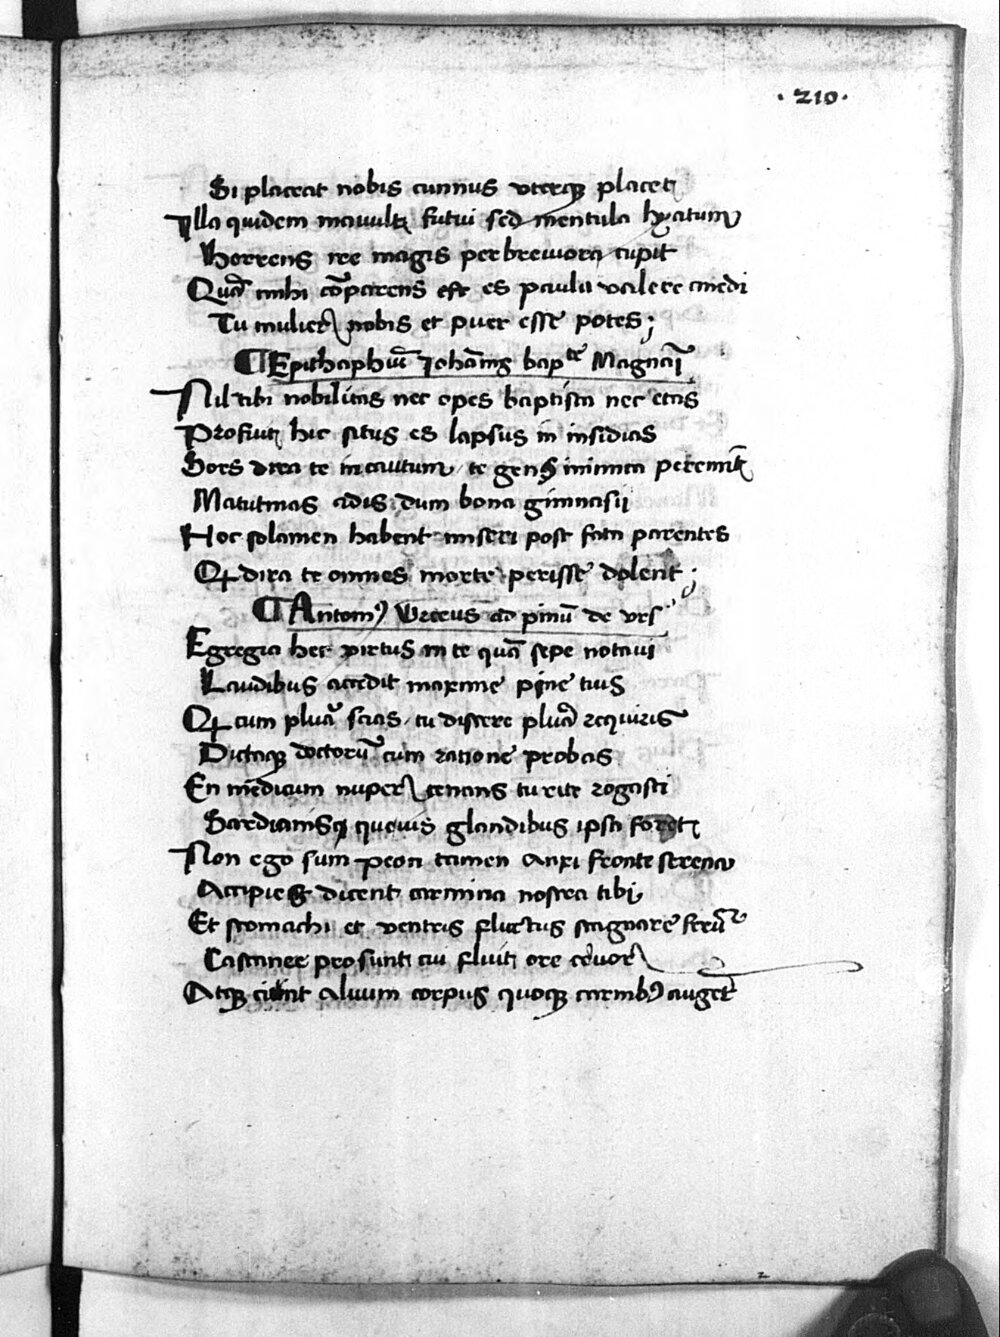 · 210 ·
Si placeat nobis cunnus uterqꝫ placet
Illa quidem mauult futui sed mentula hyatum
Horrens me magis per breuiora cupit
Quā mihi cōparens est es paula ualere cinedi
Tu mulier nobis et puer esse potes;
¶ Epithaphiū Iohānis bapte Magnāi
Nil tibi nobilitas nec opes baptista nec etas
Profuit hic situs es lapsus in insidias
Sors dira te incautum te gens inimica peremit
Matutinas adis dum bona gimnasii
Hoc solamen habent miseri post fata parentes
Qꝫ dira te omnes morte perisse dolent;
¶ Antoniꝰ Vrceus ad pinū de urs
Egregia hec uirtus in te quā sepe notaui
Laudibus accedit maxime pine tuis
Qꝫ cum plura scias tu discere plura requiris
Dictaqꝫ doctorū cum ratione probas
En medicum nuper cenans tu rite rogasti
Sardianisqꝫ queuis glandibus ipsa foret
Non ego sum peon tamen anxi fronte serena
Accipies dicent carmina nostra tibi
Et stomachi et uentris fluctus stagnare ferūt
Castanee prosunt cui fluit ore cruor
Atqꝫ cient aluum corpus quoqꝫ carnibꝰ auget